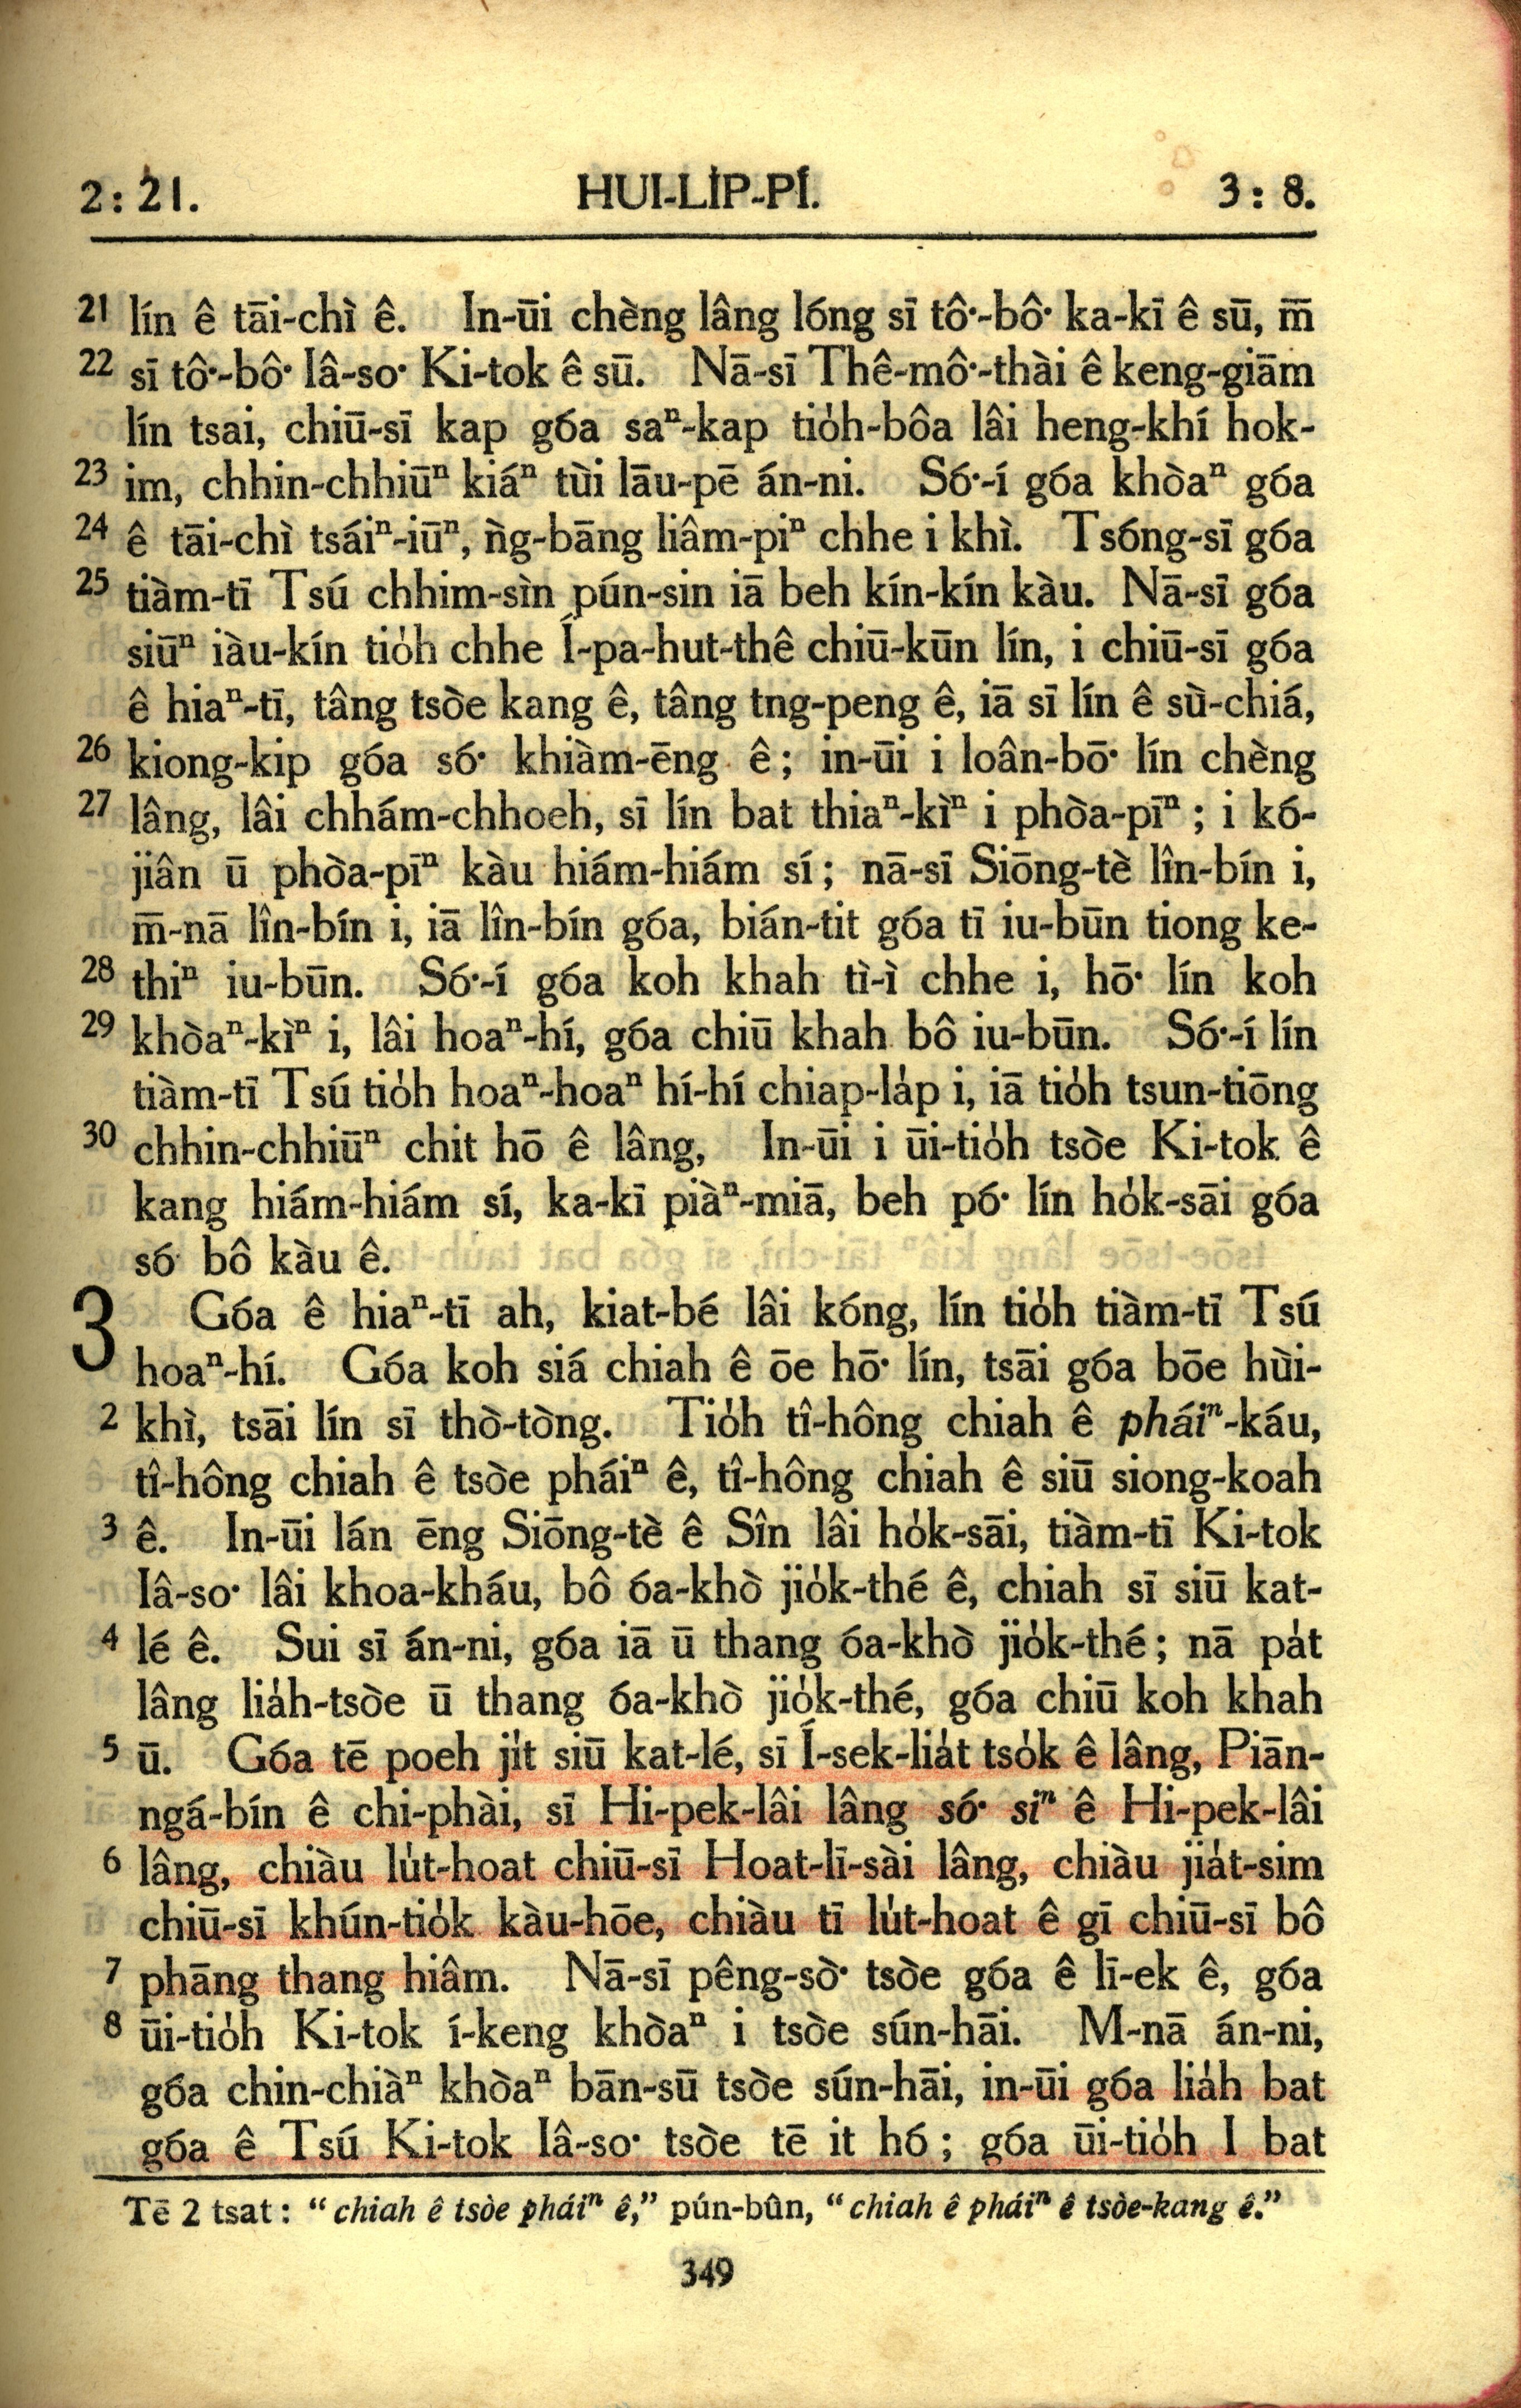 2: 21. HUI-LI̍P-PÍ. 3: 8.
21 lín ê tāi-chì ê. In-ūi chèng lâng lóng sī tô͘-bô͘ ka-kī ê sū, m̄
22 sī tô͘-bô͘ Iâ-so͘ Ki-tok ê sū. Nā-sī Thê-mô͘-thài ê keng-giām
lín tsai, chiū-sī kap góa saⁿ-kap tio̍h-bôa lâi heng-khí hok-
23 im, chhin-chhiūⁿ kiáⁿ tùi lāu-pē án-ni. Só͘-í góa khòaⁿ góa
24 ê tāi-chì tsáiⁿ-iūⁿ, ǹg-bāng liâm-piⁿ chhe i khì. Tsóng-sī góa
25 tiàm-tī Tsú chhim-sìn pún-sin iā beh kín-kín kàu. Nā-sī góa
siūⁿ iàu-kín tio̍h chhe Í-pa-hut-thê chiū-kūn lín, i chiū-sī góa
ê hiaⁿ-tī, tâng tsòe kang ê, tâng tng-peng ê, iā sī lín ê sù-chiá,
26 kiong-kip góa só͘ khiàm-ēng ê; in-ūi i loân-bō͘ lín chèng
27 lâng, lâi chhám-chhoeh, sī lín bat thiaⁿ-kìⁿ i phòa-pīⁿ; i kó-
jiân ū phòa-pīⁿ kàu hiám-hiám sí; nā-sī Siōng-tè lîn-bín i,
m̄-nā lîn-bín i, iā lîn-bín góa, bián-tit góa tī iu-būn tiong ke-
28 thiⁿ iu-būn. Só͘-í góa koh khah tì-ì chhe i, hō͘ lín koh
29 khòaⁿ-kìⁿ i, lâi hoaⁿ-hí, góa chiū khah bô iu-būn. Só͘-í lín
tiàm-tī Tsú tio̍h hoaⁿ-hoaⁿ hí-hí chiap-la̍p i, iā tio̍h tsun-tiōng
30 chhin-chhiūⁿ chit hō ê lâng, In-ūi i ūi-tio̍h tsòe Ki-tok ê
kang hiám-hiám sí, ka-kī piàⁿ-miā, beh pó͘ lín ho̍k-sāi góa
só bô kàu ê.
3 Góa ê hiaⁿ-tī ah, kiat-bé lâi kóng, lín tio̍h tiàm-tī Tsú
hoaⁿ-hí. Góa koh siá chiah ê ōe hō͘ lín, tsāi góa bōe hùi-
2 khì, tsāi lín sī thò-tòng. Tio̍h tî-hông chiah ê pháiⁿ-káu,
tî-hông chiah ê tsòe pháiⁿ ê, tî-hông chiah ê siū siong-koah
3 ê. In-ūi lán ēng Siōng-tè ê Sîn lâi ho̍k-sāi, tiàm-tī Ki-tok
Iâ-so͘ lâi khoa-kháu, bô óa-khò jio̍k-thé ê, chiah sī siū kat-
4 lé ê. Sui sī án-ni, góa iā ū thang óa-khò jio̍k-thé; nā pa̍t
lâng lia̍h-tsòe ū thang óa-khò jio̍k-thé, góa chiū koh khah
5 ū. Góa tē poeh ji̍t siū kat-lé, sī Í-sek-lia̍t tso̍k ê lâng, Piān-
ngá-bín ê chi-phài, sī Hi-pek-lâi lâng só͘ siⁿ ê Hi-pek-lâi
6 lâng, chiàu lu̍t-hoat chiū-sī Hoat-lī-sài lâng, chiàu jia̍t-sim
chiū-sī khún-tio̍k kàu-hōe, chiàu tī lu̍t-hoat ê gī chiū-sī bô
7 phāng thang hiâm. Nā-sī pêng-sò͘ tsòe góa ê lī-ek ê, góa
8 ūi-tio̍h Ki-tok í-keng khòaⁿ i tsòe sún-hāi. M-nā án-ni,
góa chin-chiàⁿ khòaⁿ bān-sū tsòe sún-hāi, in-ūi góa lia̍h bat
góa ê Tsú Ki-tok Iâ-so͘ tsòe tē it hó; góa ūi-tio̍h I bat
Tē 2 tsat: “chiah ê tsòe pháiⁿ ê,” pún-bûn, “chiah ê pháiⁿ ê tsòe-kang ê.”
349